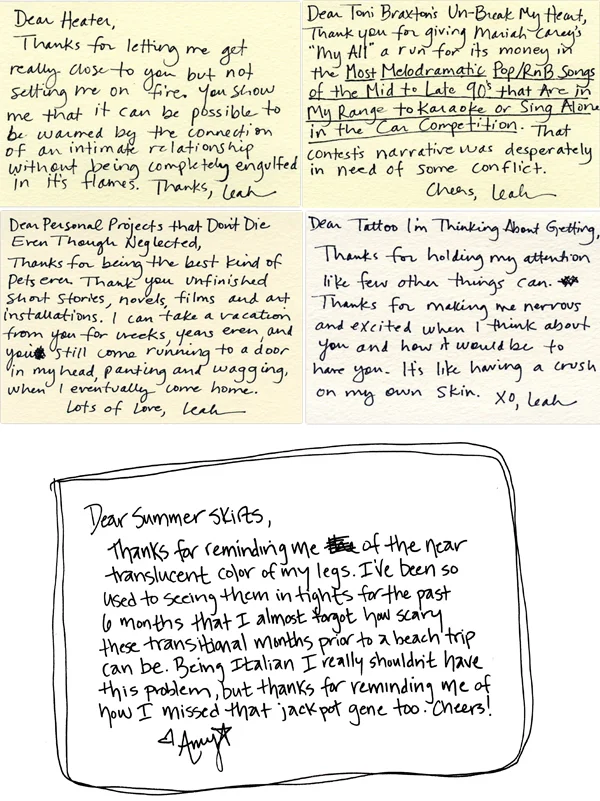 Dear Heater,
Thanks for letting me get
really close to you but not
setting me on fire. You show
me that it can be possible to
be warmed by the connection
of an intimate relationship
without being completely engulfed
in it's flames. Thanks, Leah
Dear Toni Braxton's Un-Break My Heart,
Thank you for giving Mariah Carey's
"My All" a run for its money in
the Most Melodramatic Pop/RnB Songs
of the Mid to Late 90's that Are in
My Range to Karaoke or Sing Alone
in the Car Competition. That
contest's narrative was desperately
in need of some conflict.
Cheers, Leah
Dear Personal Projects that Don't Die
Even Though Neglected,
Thanks for being the best kind of
pets ever. Thank you unfinished
short stories, novels, films and art
installations. I can take a vacation
from you for weeks, years even, and
you still come running to a door
in my head, panting and wagging,
when I eventually come home.
Lots of Love, Leah
Dear Tattoo I'm Thinking About Getting,
Thanks for holding my attention
like few other things can.
Thanks for making me nervous
and excited when I think about
you and how it would be to
have you. It's like having a crush
on my own skin. XO, Leah
Dear Summer Skirts,
Thanks for reminding me of the near
translucent color of my legs. I've been so
used to seeing them in tights for the past
6 months that I almost forgot how scary
these transitional months prior to a beach trip
can be. Being Italian I really shouldn't have
this problem, but thanks for reminding me of
how I missed that jackpot gene too. Cheers!
Amy